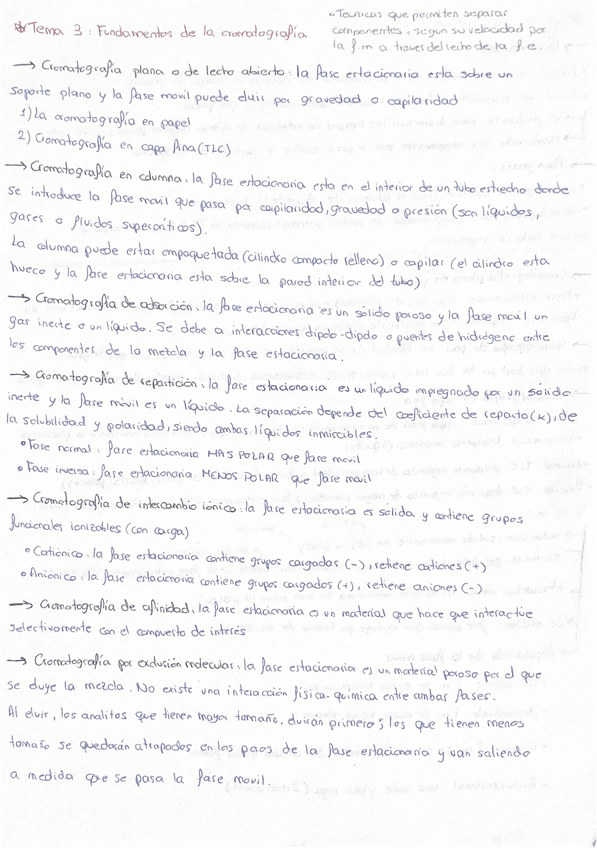 * Tema 3: Fundamentos de la cromatografía
• Tecnicas que permiten separar
componentes, segun su velocidad por
la f.m a traves del lecho de la f.e.
→ Cromatografía plana o de lecho abierto: la fase estacionaria esta sobre un
soporte plano y la fase movil puede eluir por gravedad o capilaridad
1) La cromatografía en papel
2) Cromatografía en capa fina (TLC)
→ Cromatografía en columna: la fase estacionaria esta en el interior de un tubo estrecho donde
se introduce la fase movil que pasa por capilaridad, gravedad o presión (son líquidos,
gases o fluidos supercríticos).
La columna puede estar empaquetada (cilindro compacto relleno) o capilar (el cilindro esta
hueco y la fase estacionaria esta sobre la pared interior del tubo)
→ Cromatografía de adsorción: la fase estacionaria es un solido poroso y la fase movil un
gas inerte o un líquido. Se debe a interacciones dipolo-dipolo o puentes de hidrógeno entre
los componentes de la mezcla y la fase estacionaria.
→ Cromatografía de repartición: la fase estacionaria es un líquido impregnado por un sólido
inerte y la fase móvil es un líquido. La separación depende del coeficiente de reparto (k), de
la solubilidad y polaridad, siendo ambas líquidos inmiscibles.
• Fase normal: fase estacionaria MAS POLAR que fase movil
• Fase inversa: fase estacionaria MENOS POLAR que fase movil
→ Cromatografía de intercambio iónico: la fase estacionaria es solida y contiene grupos
funcionales ionizables (con carga)
• Catiónico: la fase estacionaria contiene grupos cargados (-), retiene cationes (+)
• Anionico: la fase estacionaria contiene grupos cargados (+), retiene aniones (-)
→ Cromatografía de afinidad: la fase estacionaria es un material que hace que interactúe
selectivamente con el compuesto de interés
→ Cromatografía por exclusión molecular: la fase estacionaria es un material poroso por el que
se eluye la mezcla. No existe una interacción física-química entre ambas fases.
Al eluir, los analitos que tienen mayor tamaño, eluirán primero; los que tienen menos
tamaño se quedarán atrapados en los poros de la fase estacionaria y van saliendo
a medida que se pasa la fase movil.